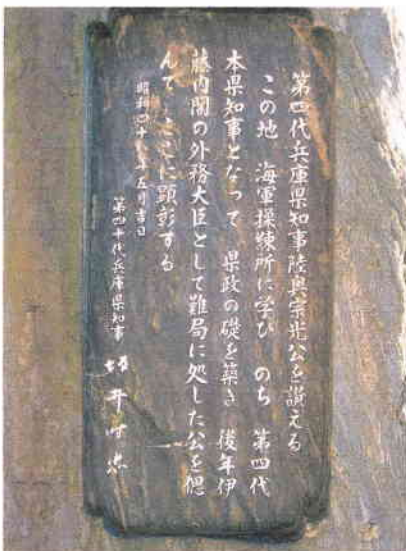 第四代兵庫県知事陸奥宗光公を讃える
この地 海軍操練所に学び のち 第四代
本県知事となって 県政の礎を築き 後年伊
藤内閣の外務大臣として難局に処した公を偲
んで ここに顕彰する
昭和四十八年五月吉日
第四十代兵庫県知事 坂井時忠